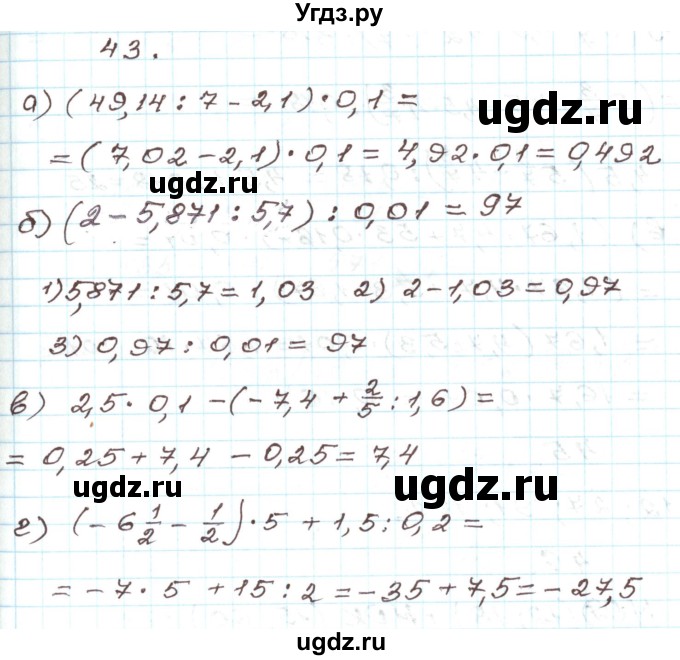 Угдз.ру
43.
а) (49,14 : 7 - 2,1) · 0,1 =
ugdz.ru
= (7,02 - 2,1) · 0,1 = 4,92 · 0,1 = 0,492
ugdz.ru
б) (2 - 5,871 : 5,7) : 0,01 = 97
1) 5,871 : 5,7 = 1,03 2) 2 - 1,03 = 0,97
3) 0,97 : 0,01 = 97
в) 2,5 · 0,1 - (-7,4 + 2/5 : 1,6) =
= 0,25 + 7,4 - 0,25 = 7,4
ugdz.ru ugdz.ru
г) (-6 1/2 - 1/2) · 5 + 1,5 : 0,2 =
= -7 · 5 + 15 : 2 = -35 + 7,5 = -27,5
ugdz.ru